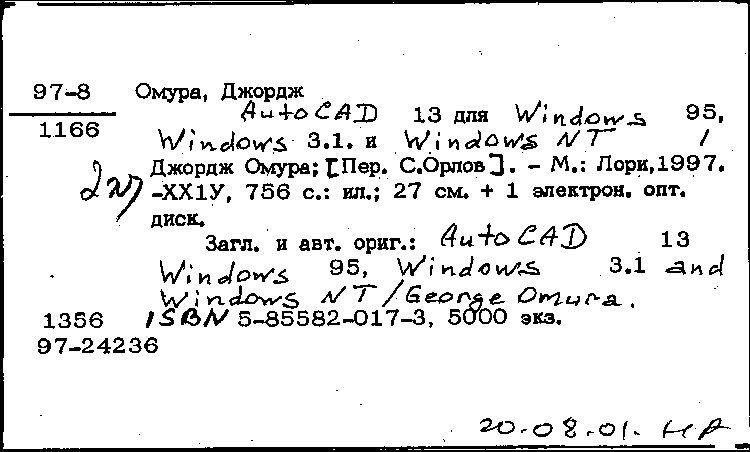 97-8 Омура, Джордж
AutoCAD 13 для Windows 95,
1166 Windows 3.1. и Windows NT /
Джордж Омура; [Пер. С.Орлов]. - М.: Лори,1997.
-XX1У, 756 с.: ил.; 27 см. + 1 электрон. опт.
диск.
Загл. и авт. ориг.: AutoCAD 13
Windows 95, Windows 3.1 and
Windows NT / George Omura.
1356 ISBN 5-85582-017-3, 5000 экз.
97-24236
20.08.01.